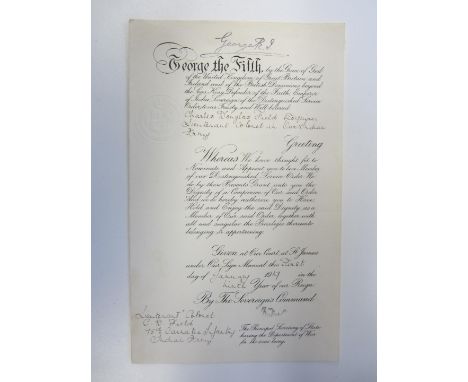 George R.I
George the Fifth, by the Grace of God
of the United Kingdom of Great Britain and
Ireland and of the British Dominions beyond
the Seas King, Defender of the Faith, Emperor
of India, Sovereign of the Distinguished Service
Order, to our Trusty and Well-beloved
Charles Douglas Field Esquire,
Lieutenant Colonel in Our Indian
Army
Greeting
Whereas We have thought fit to
Nominate and Appoint you to be a Member
of our Distinguished Service Order We
do by these Presents Grant unto you the
Dignity of a Companion of Our said Order
And we do hereby authorize you to Have
Hold and Enjoy the said Dignity as a
Member of Our said Order, together with
all and singular the Privileges thereunto
belonging or appertaining.
Given at Our Court at St. James
under Our Sign Manual this First
day of January 1919 in the
ninth Year of our Reign
By The Sovereign's Command
Lieutenant Colonel
C. D. Field
Carnatic Infantry
Indian Army
The Principal Secretary of State
having the Department of War
for the time being.